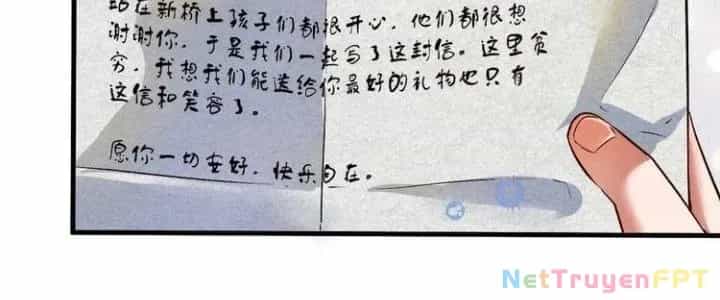 站在新桥上孩子们都很开心，他们都很想
谢谢你，于是我们一起写了这封信。这里贫
穷，我想我们能送给你最好的礼物也只有
这信和笑容了。
愿你一切安好，快乐自在。
NetTruyenFPT